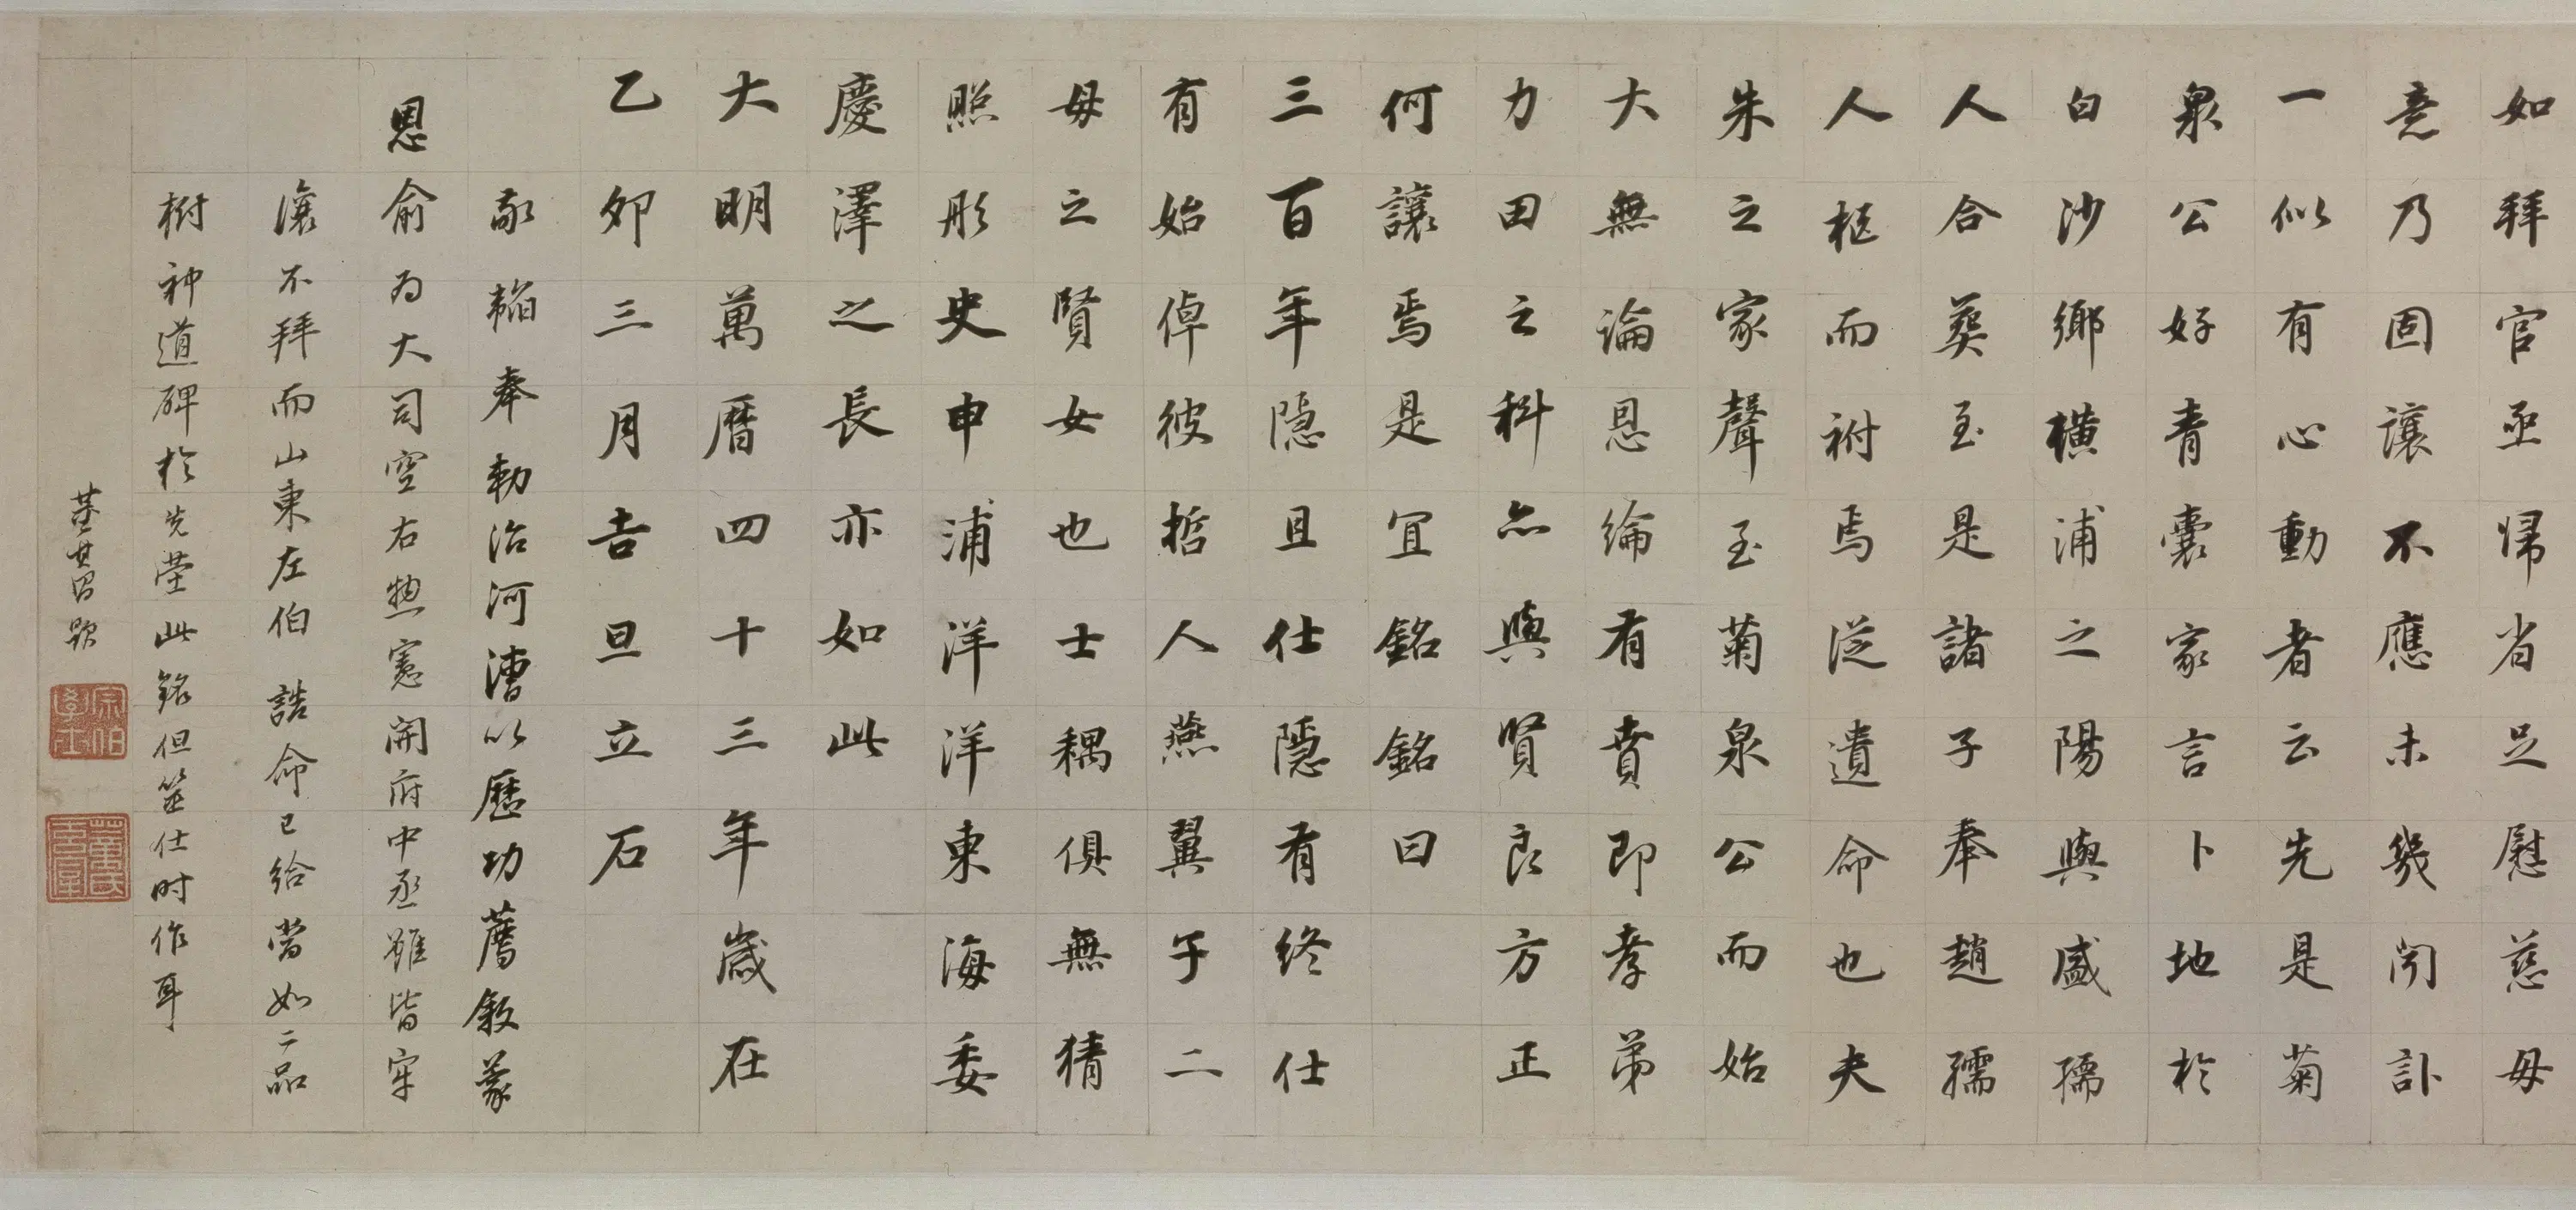 如拜官亟歸省足慰慈母
意乃固讓不應未幾聞訃
一似有心動者云先是菊
泉公好青囊家言卜地於
白沙鄉橫浦之陽與盛孺
人合葬至是諸子奉趙孺
人柩而祔焉從遺命也夫
朱之家聲至菊泉公而始
大無論恩綸有賁即孝弟
力田之科亦與賢良方正
何讓焉是宜銘銘曰
三百年隱且仕隱有終仕
有始倬彼哲人燕翼子二
母之賢女也士耦俱無猜
照彤史申浦洋洋東海委
慶澤之長亦如此
大明萬曆四十三年歲在
乙卯三月吉旦立石
敬韜奉勅治河漕以歷功薦敘蒙
恩俞為大司空右揔憲開府中丞雖皆牢
讓不拜而山東左伯誥命已給當如二品
樹神道碑於先塋此銘但筮仕時作耳
董其昌題
宗伯學士
董氏玄宰